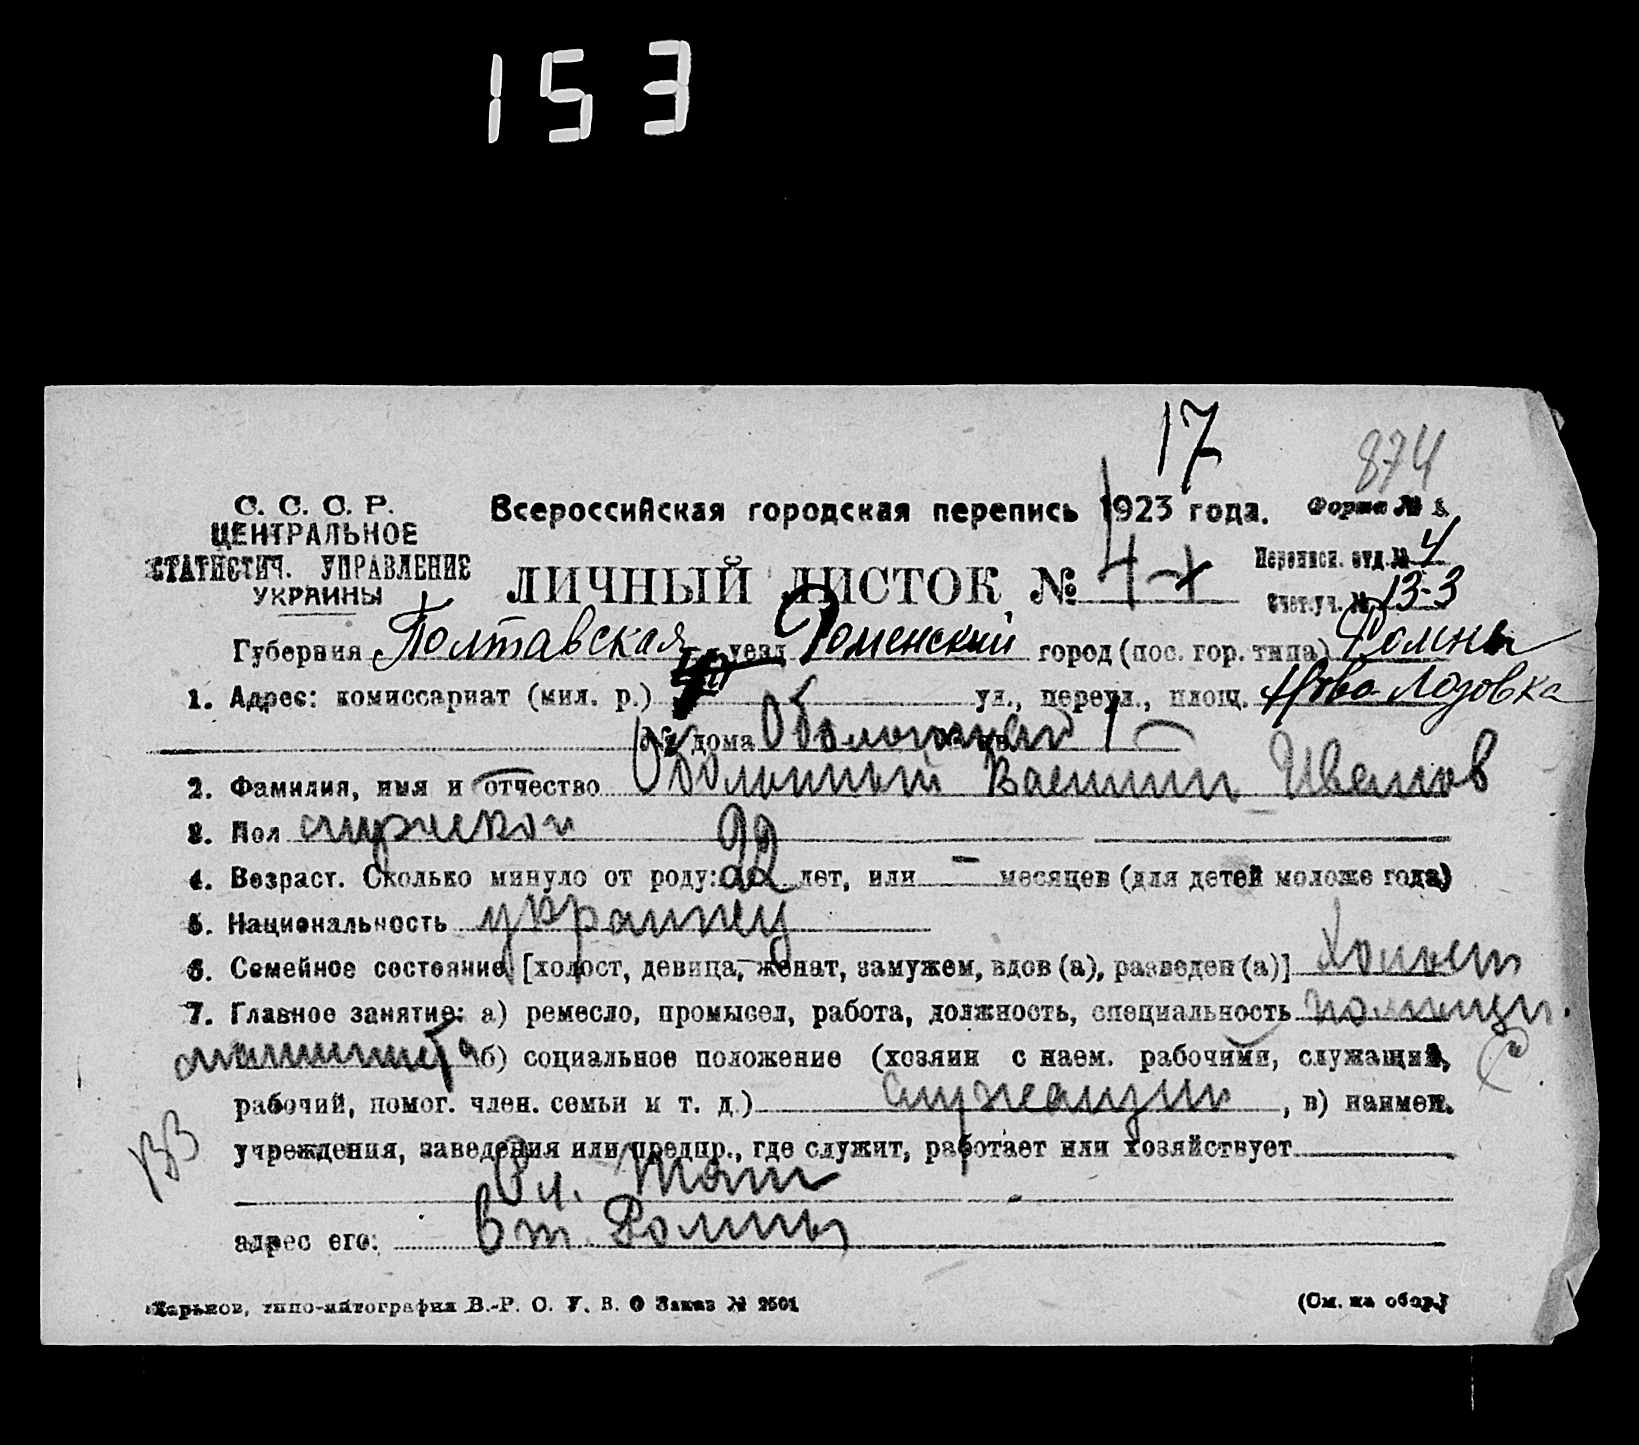 153
17
874
С. С. С. Р.
ЦЕНТРАЛЬНОЕ
СТАТИСТИЧ. УПРАВЛЕНИЕ
УКРАИНЫ
Всероссийская городская перепись 1923 года.
Форма № 1.
ЛИЧНЫЙ ЛИСТОК №
Переписн. отд. № 4
Счет. уч. № 13-3
Губерния Полтавская уезд Роменский город (пос. гор. типа) Ромны
1. Адрес: комиссариат (мил. р.) ул., переул., площ. Ново-Лозовка
№ дома кв. 1
2. Фамилия, имя и отчество Оболонный Василий Иванов
3. Пол мужской
4. Возраст. Сколько минуло от роду: 22 лет, или — месяцев (для детей моложе года)
5. Национальность украинец
6. Семейное состояние [холост, девица, женат, замужем, вдов (а), разведен (а)] Холост
7. Главное занятие: а) ремесло, промысел, работа, должность, специальность помощн.
машиниста б) социальное положение (хозяин с наем. рабочими, служащий,
рабочий, помог. член. семьи и т. д.) служащий, в) наимен.
учреждения, заведения или предпр., где служит, работает или хозяйствует
адрес его: ст. Ромны
Харьков, типо-литография В.-Р. О. У. В. О Заказ № 2501
(См. на обор.)